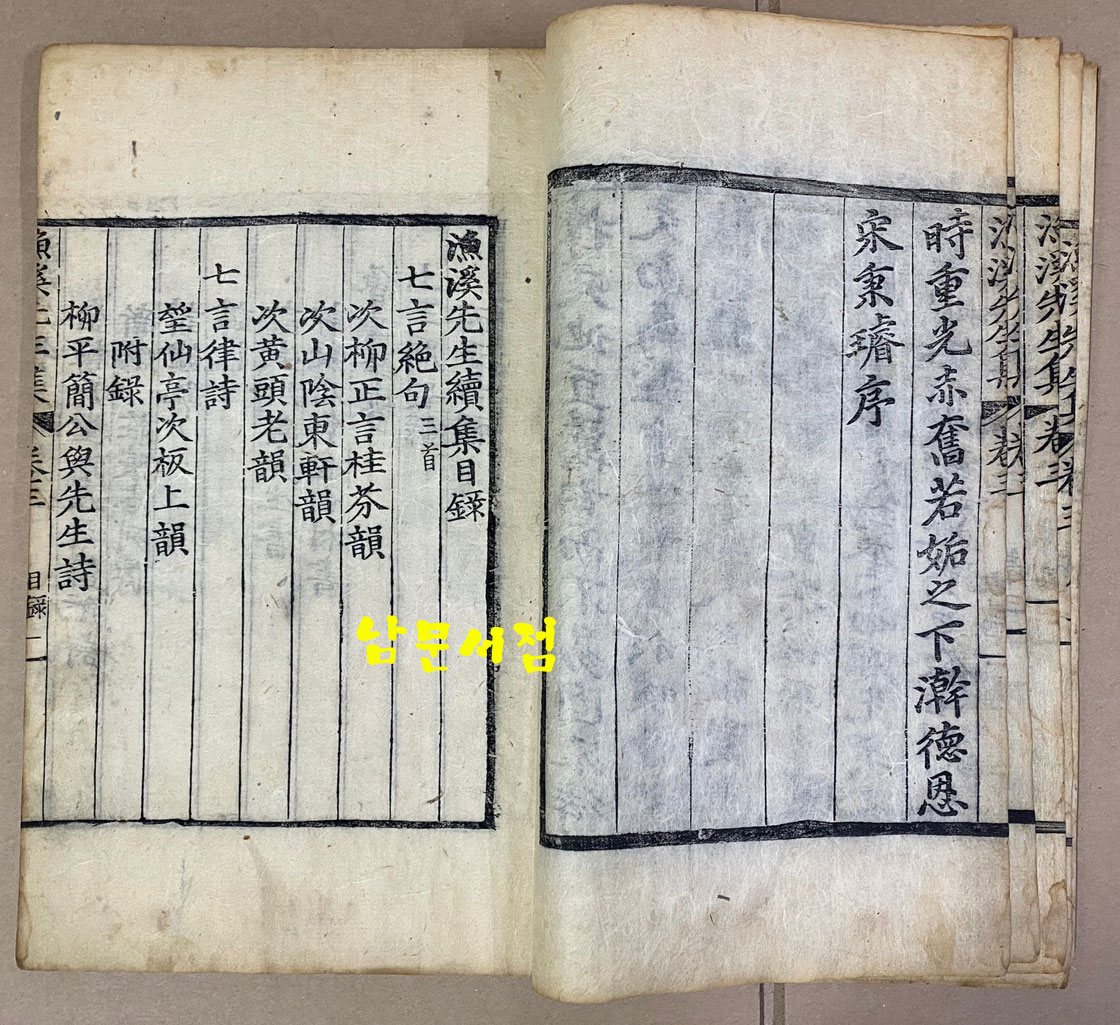 時重光赤奮若姤之下澣德恩
宋秉璿序
漁溪先生續集目錄
七言絕句 三首
次柳正言桂芬韻
次山陰東軒韻
次黃頭老韻
七言律詩
望仙亭次板上韻
附錄
柳平簡公與先生詩
漁溪先生集 卷三 目錄 一
漁溪先生集 卷三
漁溪先生集 卷三
漁溪先生集 卷三
남문서점